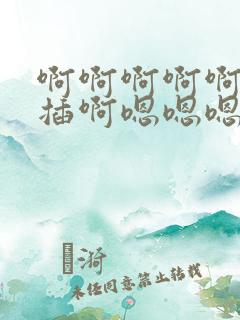 啊啊啊啊啊
插啊嗯嗯嗯
漪
未经同意禁止转载